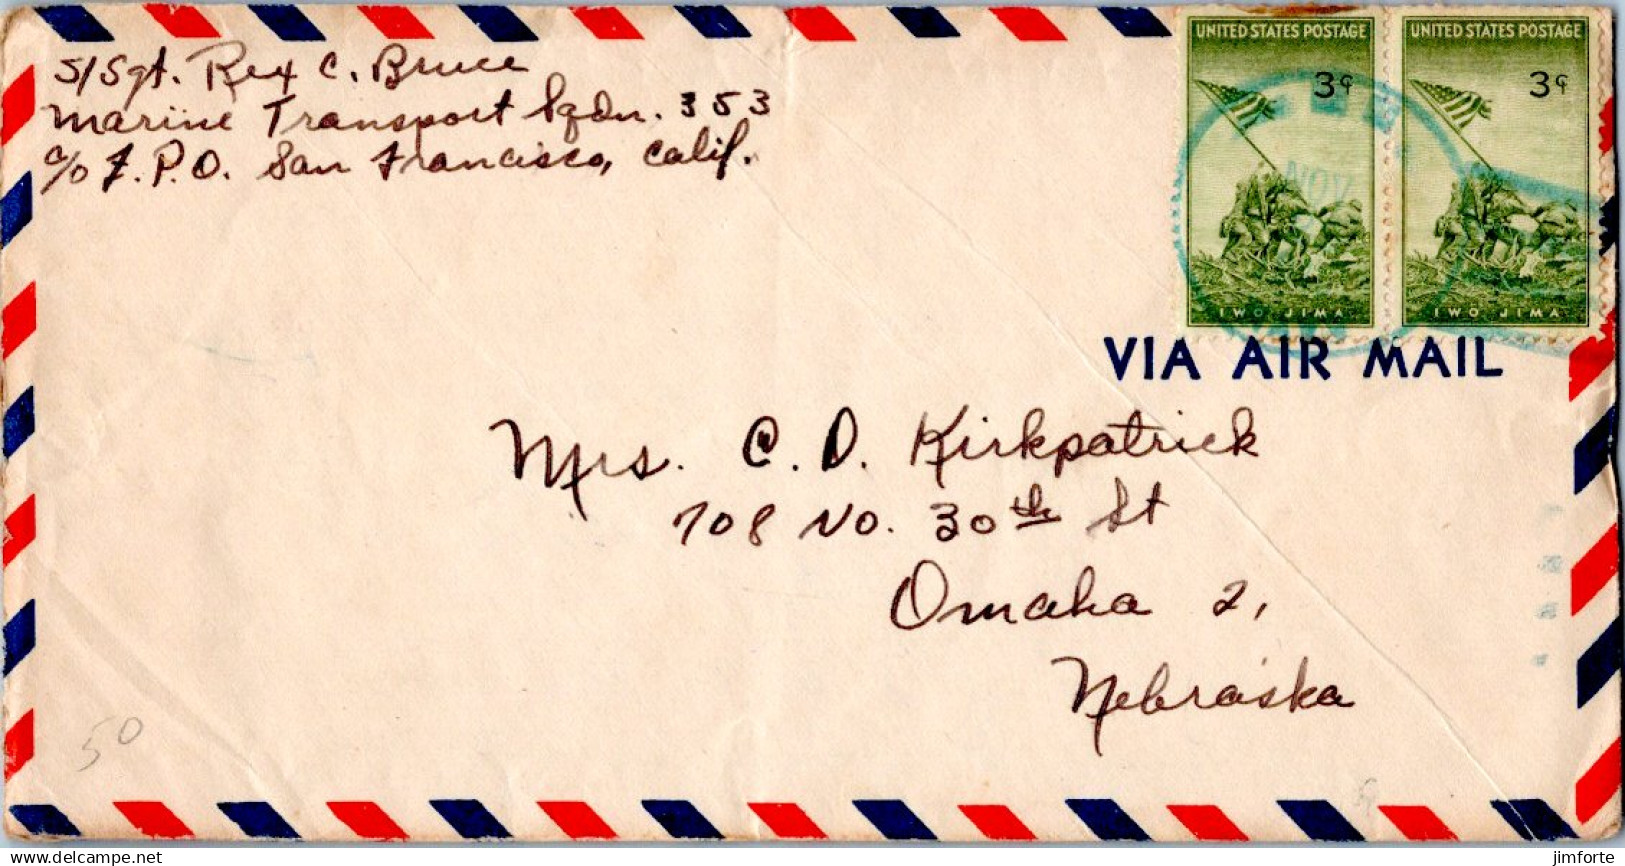 S/Sgt. Rex C. Bruce
Marine Transport Sqdn. 353
c/o F.P.O. San Francisco, Calif.
UNITED STATES POSTAGE
3¢
IWO JIMA
UNITED STATES POSTAGE
3¢
IWO JIMA
NOV
VIA AIR MAIL
Mrs. C. D. Kirkpatrick
708 No. 30th St
Omaha 2,
Nebraska
50
delcampe.net
jimforte